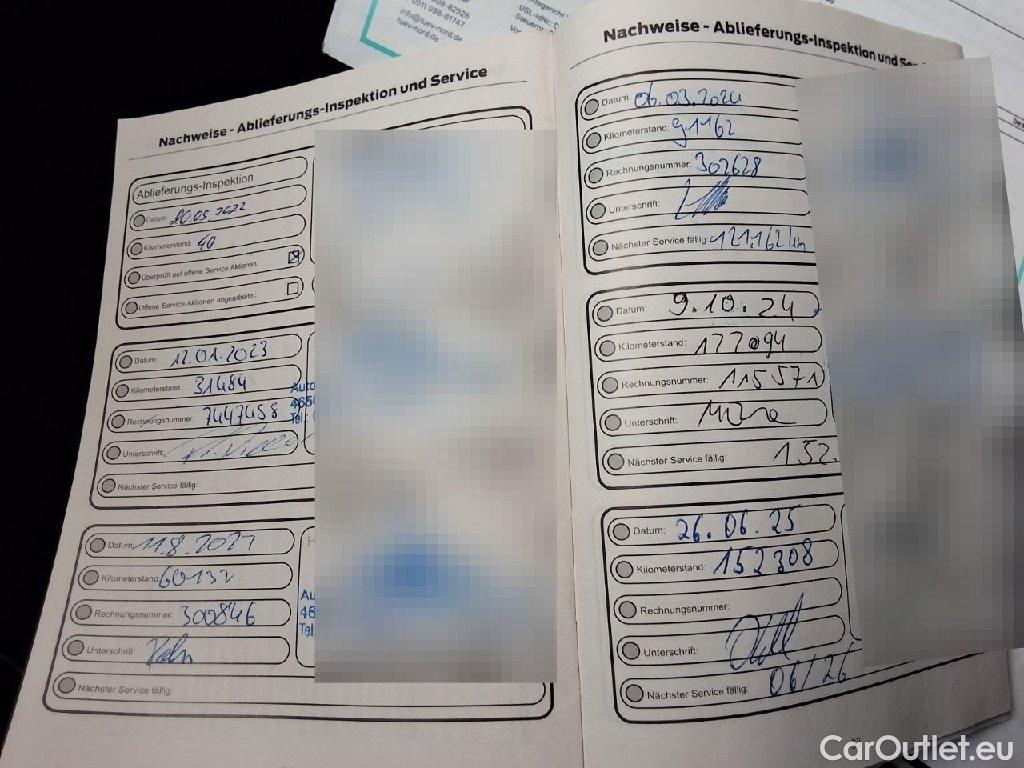 info@tuev-nord.de
tuev-nord.de
Nachweise - Ablieferungs-Inspektion und Service
Ablieferungs-Inspektion
Datum: 20.05.2022
Kilometerstand: 40
Überprüft auf offene Service Aktionen:
Offene Service Aktionen abgearbeitet:
Datum: 12.01.2023
Kilometerstand: 31484
Rechnungsnummer: 7447458
Unterschrift:
Nächster Service fällig:
Datum: 11.8.2023
Kilometerstand: 60132
Rechnungsnummer: 300846
Unterschrift:
Nächster Service fällig:
Nachweise - Ablieferungs-Inspektion und
Datum: 06.03.2024
Kilometerstand: 91162
Rechnungsnummer: 302628
Unterschrift:
Nächster Service fällig: 121.162 km
Datum: 9.10.24
Kilometerstand: 122094
Rechnungsnummer: 115571
Unterschrift:
Nächster Service fällig: 152.
Datum: 26.06.25
Kilometerstand: 152308
Rechnungsnummer:
Unterschrift:
Nächster Service fällig: 06/26
CarOutlet.eu